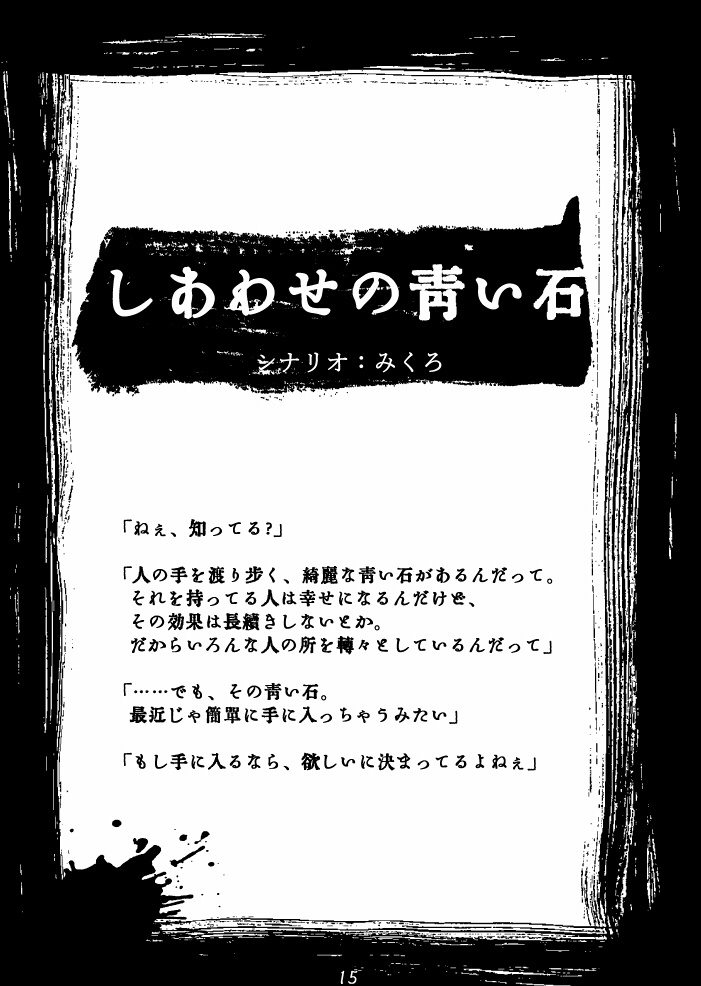 しあわせの靑い石
シナリオ：みくろ
「ねぇ、知ってる?」
「人の手を渡り歩く、綺麗な靑い石があるんだって。
それを持ってる人は幸せになるんだけど、
その効果は長續きしないとか。
だからいろんな人の所を轉々としているんだって」
「……でも、その靑い石。
最近じゃ簡單に手に入っちゃうみたい」
「もし手に入るなら、欲しいに決まってるよねぇ」
15